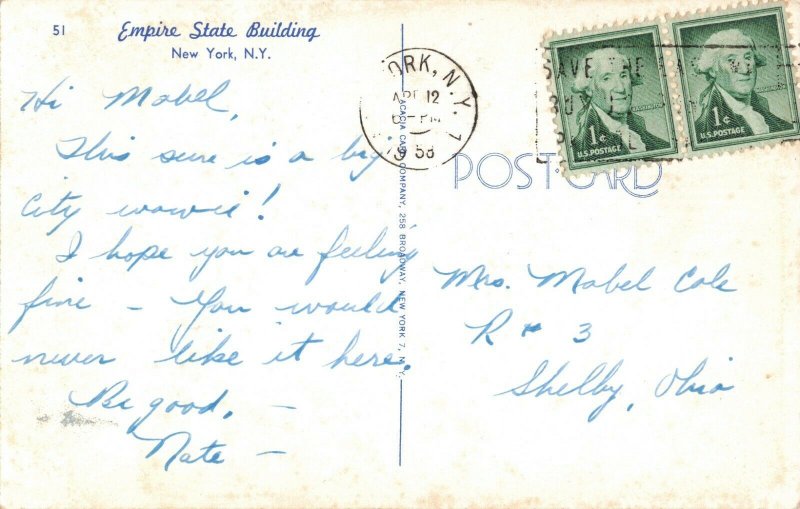 51
Empire State Building
New York, N.Y.
Hi Mabel,
This sure is a big
city wowie!
I hope you are feeling
fine – You would
never like it here.
Be good, –
Nate –
ACACIA CARD COMPANY, 258 BROADWAY, NEW YORK 7, N.Y.
ORK, N.Y.
APR 12
PM
1958
SAVE THE
BUY
1¢
U.S. POSTAGE
1¢
U.S. POSTAGE
POST CARD
Mrs. Mabel Cole
R # 3
Shelby, Ohio